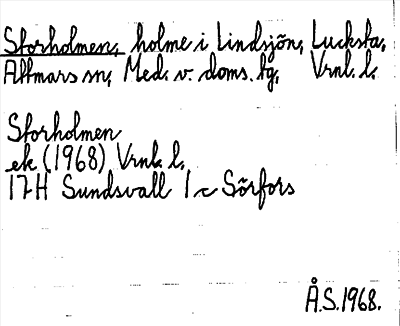 Storholmen, holme i Lindsjön, Lucksta,
Attmars sn, Med. v. doms. tg, Vrnl. l.
Storholmen
ek (1968) Vrnl. l.
17H Sundsvall 1 c Sörfors
Å.S. 1968.